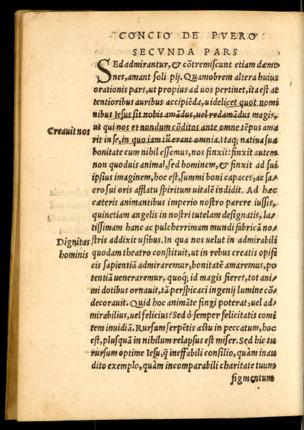 CONCIO DE PVERO
SECVNDA PARS
Sed admirantur, & cõtremiscunt etiam dæmo
nes, amant soli pij. Quamobrem altera huius
orationis pars, ut propius ad uos pertinet, ita est at
tentioribus auribus accipiẽda, uidelicet quot nomi
nibus Iesus sit nobis amãdus, uel redamãdus magis,
Creauit nos
ut qui nos et nondum cõditos ante omne tẽpus ama
rit in se, in quo iam tũ erant omnia. Itaq; natiua sua
bonitate cum nihil essemus, nos finxit: finxit autem
non quoduis animal, sed hominem, & finxit ad sui
ipsius imaginem, hoc est, summi boni capaces, ac sa-
cro sui oris afflatu spiritum uitalẽ indidit. Ad hæc
cæteris animantibus imperio nostro parere iussis,
quinetiam angelis in nostri tutelam designatis, la-
tissimam hanc ac pulcherrimam mundi fabricã no-
Dignitas
hominis
stris addixit usibus. In qua nos uelut in admirabili
quodam theatro constituit, ut in rebus creatis opifi
cis sapientiã admiraremur, bonitatẽ amaremus, po
tentiã ueneraremur, quoq́; id magis fieret, tot ani
mi dotibus ornauit, tã perspicaci ingenij lumine cõ-
decorauit. Quid hoc animãte fingi poterat, uel ad-
mirabilius, uel felicius? Sed ô semper felicitatis comi
tem inuidiã. Rursum serpẽtis astu in peccatum, hoc
est, plusquã in nihilum relapsus est miser. Sed hic tu
rursum optime Iesu, q̃ ineffabili consilio, quàm inau
dito exemplo, quàm incomparabili charitate tuum
figmentum